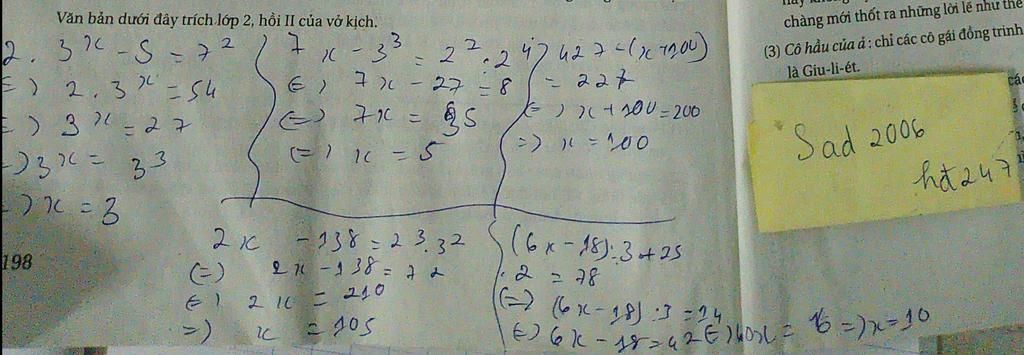 Văn bản dưới đây trích lớp 2, hồi II của vở kịch.
2. 3^x - 5 = 7^2
=) 2. 3^x = 54
=) 3^x = 27
=) 3^x = 3^3
=) x = 3
7x - 3^3 = 2^2 . 2^4
(=) 7x - 27 = 8
(=) 7x = 35
(=) x = 5
427 - (x + 100)
= 227
(=) x + 100 = 200
=) x = 100
chàng mới thốt ra những lời lẽ như thế
(3) Cô hầu của ả: chỉ các cô gái đồng trinh
là Giu-li-ét.
Sad 2006
hđ 247
198
2x - 138 = 2^3.3^2
(=) 2x - 138 = 72
(=) 2x = 210
=) x = 105
(6x - 18):3 + 25
. 2 = 78
(=) (6x - 18) : 3 = 14
(=) 6x - 18 = 42 (=) 60x = 16 =) x = 10